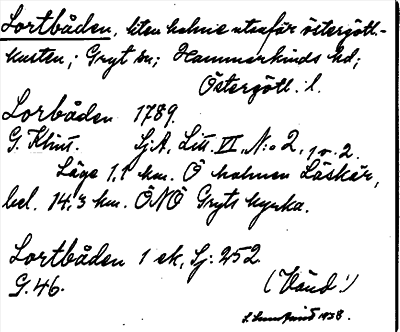 Lortbåden, liten holme utanför östergötl.-
kusten,; Gryt sn; Hammarkinds hd;
Östergötl. l.
Lorbåden 1789.
G. Klint. Sj.A, Litt. VI, N:o 2, 1 o. 2.
Läge 1,1 km. Ö holmen Läskär,
bel. 14,3 km. ÖNÖ Gryts kyrka.
Lortbåden 1 ek, Sj: 252
G. 46. (Vänd!)
1938.